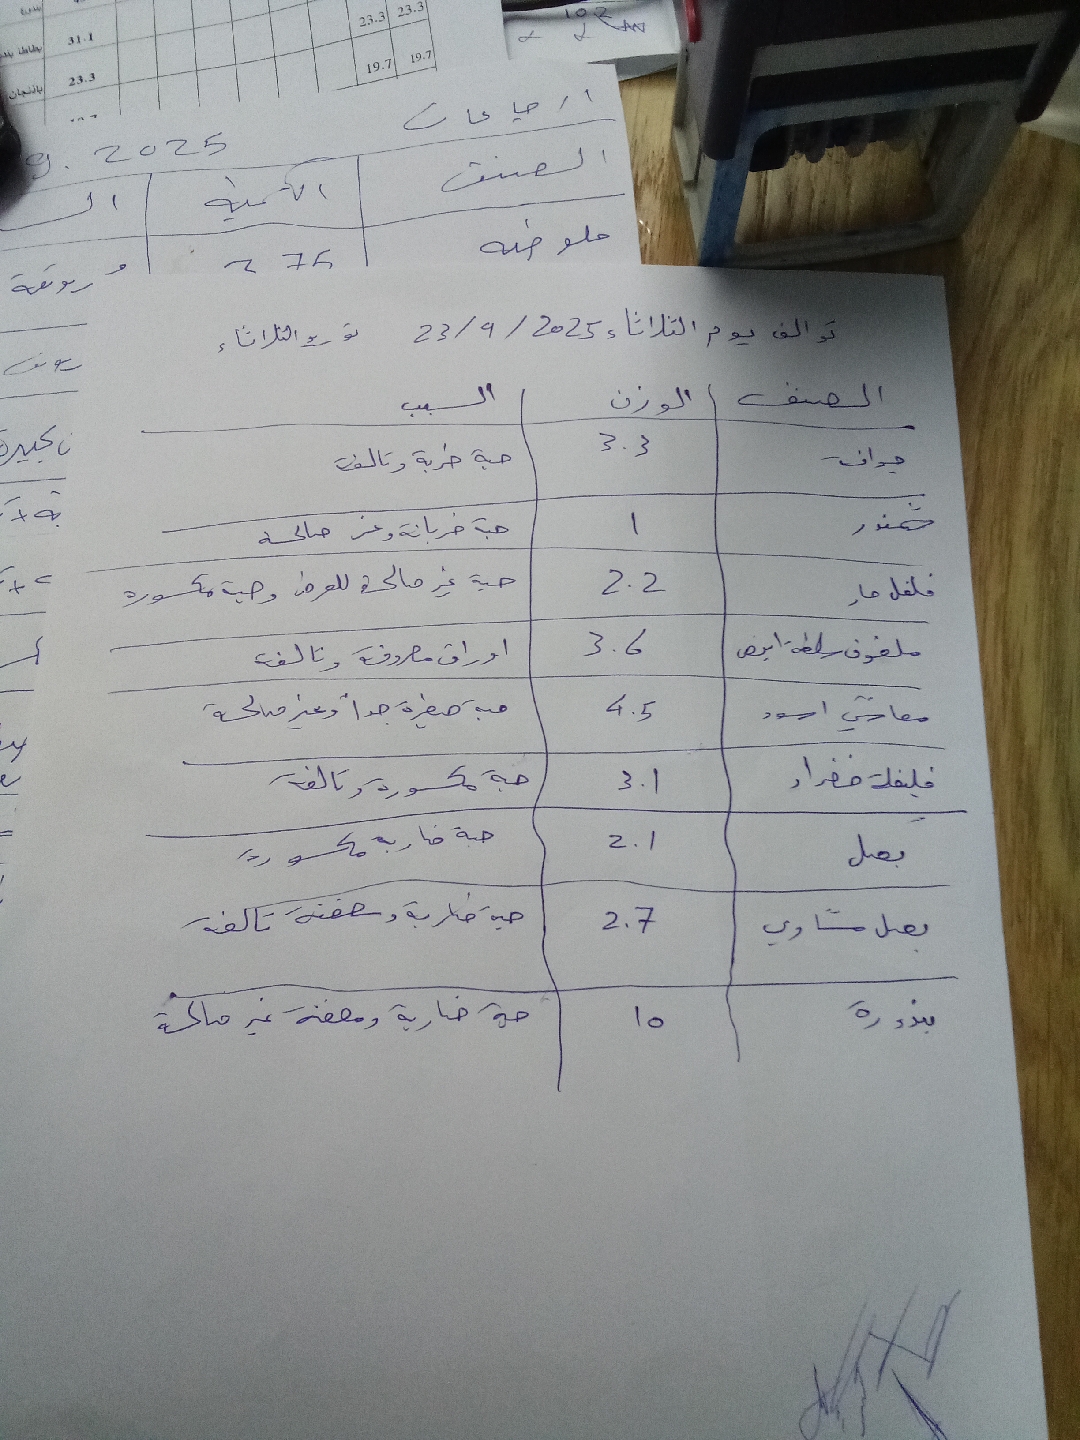 23.3 23.3
بطاطا 31.1
19.7 19.7
باذنجان 23.3
ارجاعات
9. 2025
الصنف الكمية
ملوخيه
توالف يوم الثلاثاء 23/9/2025 توريد الثلاثاء
الصنف الوزن السبب
جوافة 3.3 حبة خربة وتالفة
شمندر 1 حبة خربانة وغير صالحة
فلفل حار 2.2 حبة غير صالحة للعرض وحبة مكسورة
ملفوف سلطة ابيض 3.6 اوراق مصروفة وتالفة
معارشي اسود 4.5 حبة صغيرة جداً وغير صالحة
فليفلة خضراء 3.1 حبة مكسورة وتالفة
بصل 2.1 حبة ضاربة مكسورة
بصل مشاوي 2.7 حبة ضاربة ومعفنة تالفة
بندورة 10 حبة ضاربة ومعفنة غير صالحة